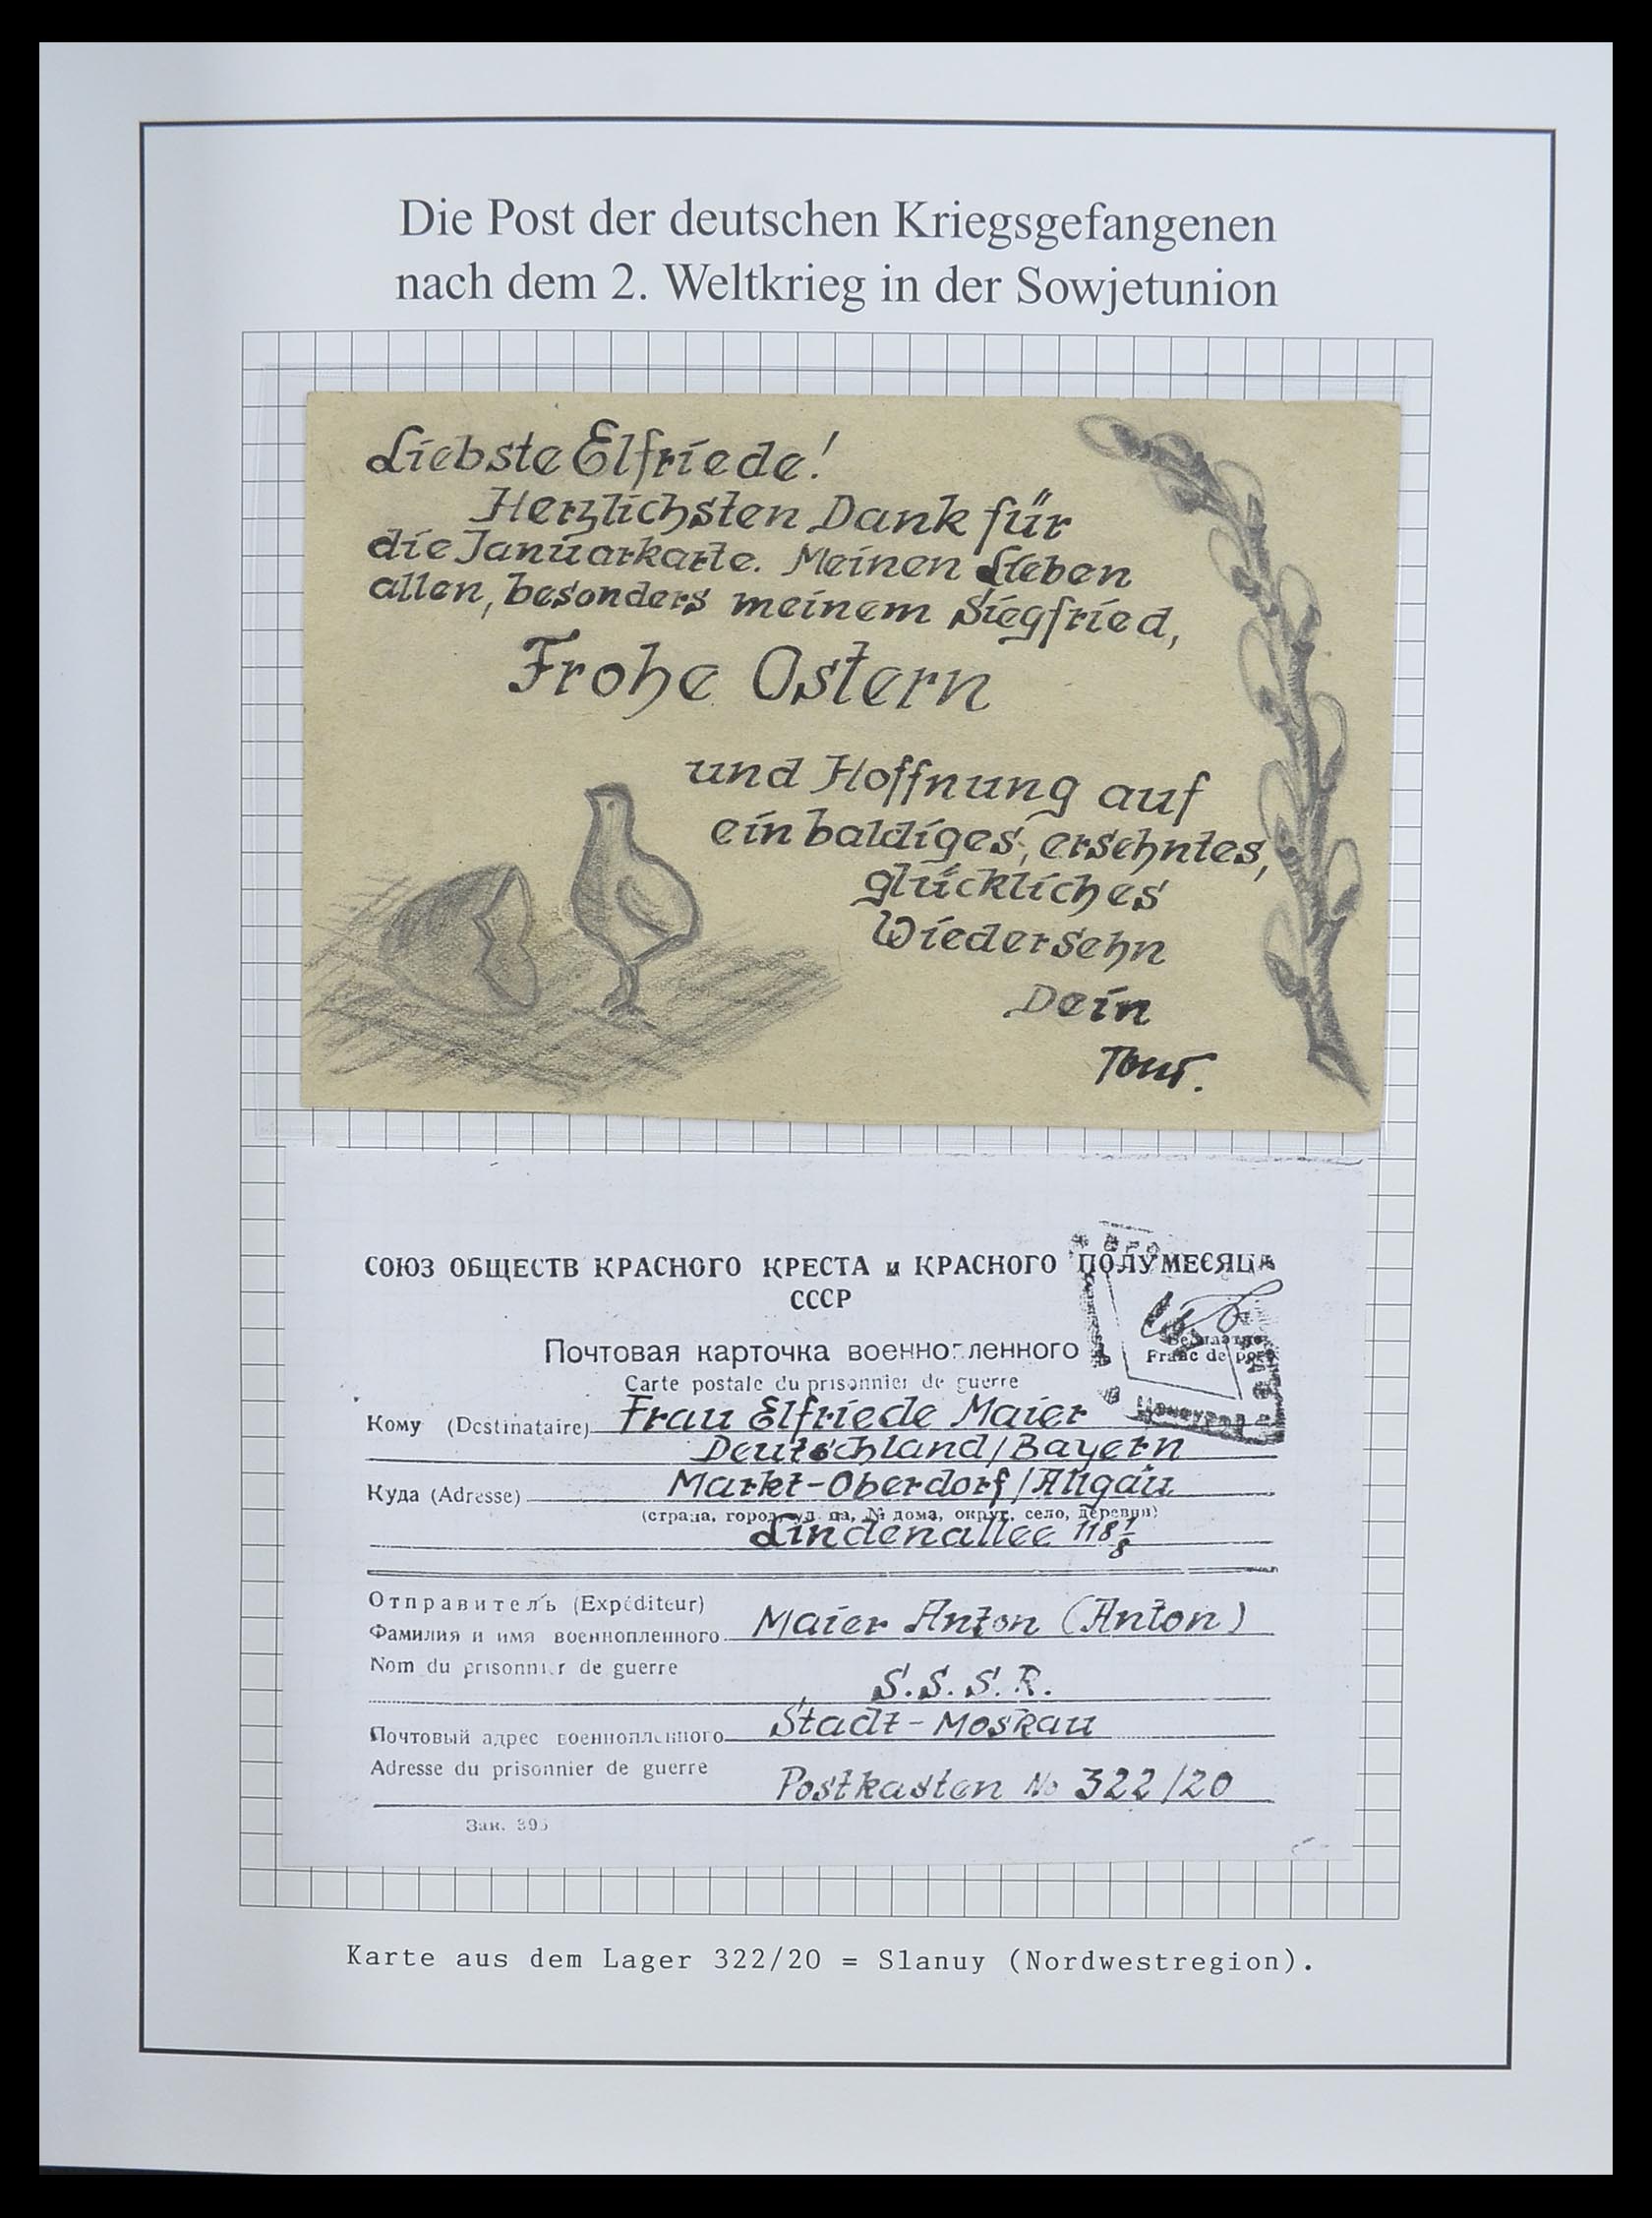 Die Post der deutschen Kriegsgefangenen
nach dem 2. Weltkrieg in der Sowjetunion
Liebste Elfriede!
Herzlichsten Dank für
die Januarkarte. Meinen Lieben
allen, besonders meinem Siegfried,
Frohe Ostern
und Hoffnung auf
ein baldiges, ersehntes,
glückliches
Wiedersehn
Dein
Toni.
СОЮЗ ОБЩЕСТВ КРАСНОГО КРЕСТА и КРАСНОГО ПОЛУМЕСЯЦА
СССР
Почтовая карточка военнопленного
Carte postale du prisonnier de guerre
Бесплатно
Franc de port
Кому (Destinataire) Frau Elfriede Maier
Deutschland/Bayern
Куда (Adresse) Markt-Oberdorf/Allgäu
(страна, город, ул ца, № дома, округ, село, деревня)
Lindenallee 118 1/8
Отправитель (Expéditeur)
Фамилия и имя военнопленного Maier Anton (Anton)
Nom du prisonnier de guerre
S.S.S.R.
Почтовый адрес военнопленного Stadt-Moskau
Adresse du prisonnier de guerre
Postkasten No 322/20
Зак. 395
Karte aus dem Lager 322/20 = Slanuy (Nordwestregion).